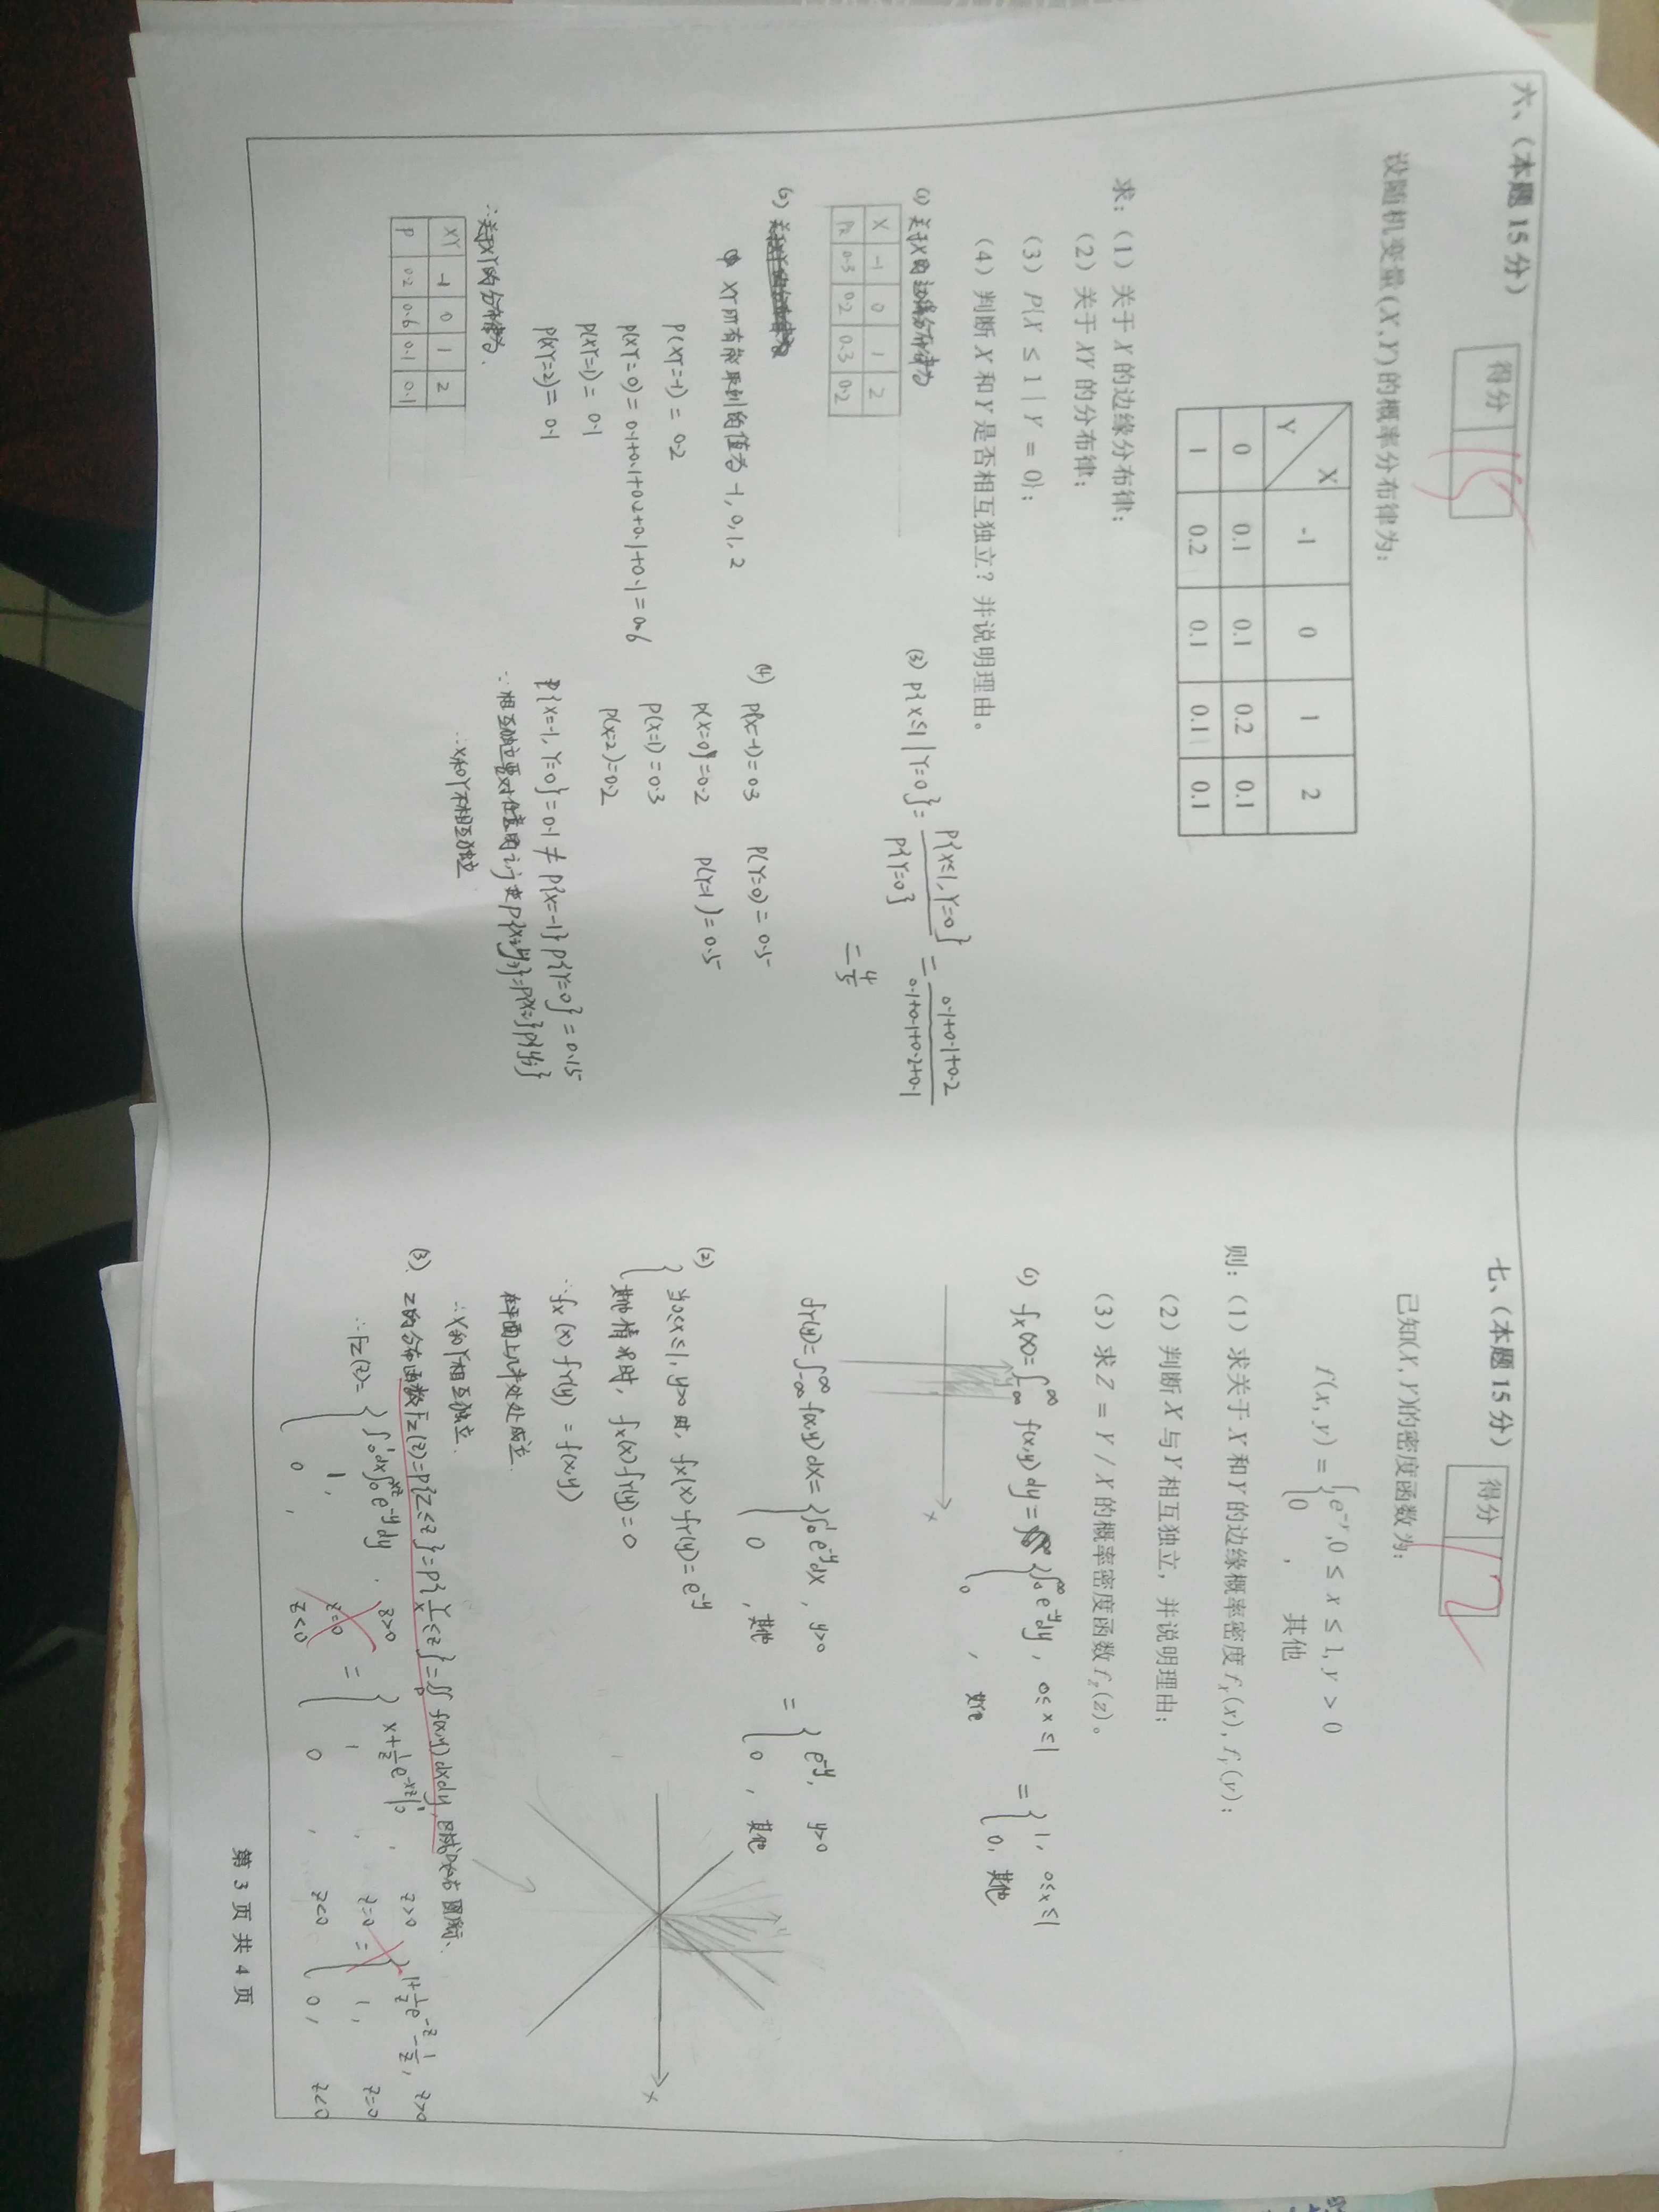 六、（本题 15 分）
得分 15
设随机变量(X,Y)的概率分布律为：
X -1 0 1 2
Y
0 0.1 0.1 0.2 0.1
1 0.2 0.1 0.1 0.1
求：（1）关于 X 的边缘分布律；
（2）关于 XY 的分布律；
（3）P{X ≤ 1 | Y = 0}；
（4）判断 X 和 Y 是否相互独立？并说明理由。
(1) 关于X的边缘分布律为
X -1 0 1 2
Pk 0.3 0.2 0.3 0.2
(2) 关于XY的分布律为
XY所有能取到的值为 -1, 0, 1, 2
P(XY=-1) = 0.2
P(XY=0) = 0.1+0.1+0.2+0.1+0.1 = 0.6
P(XY=1) = 0.1
P(XY=2) = 0.1
∴关于XY的分布律为.
XY -1 0 1 2
P 0.2 0.6 0.1 0.1
(3) P{X≤1 | Y=0} = P{X≤1, Y=0} / P{Y=0} = (0.1+0.1+0.2) / (0.1+0.1+0.2+0.1)
= 4/5
(4) P(X=-1) = 0.3 P(Y=0) = 0.5
P(X=0) = 0.2 P(Y=1) = 0.5
P(X=1) = 0.3
P(X=2) = 0.2
P{X=-1, Y=0} = 0.1 ≠ P{X=-1} P{Y=0} = 0.15
∵相互独立要对任意的 i, j
∴X和Y不相互独立
七、（本题 15 分）
得分 12
已知(X, Y)的密度函数为：
f(x, y) = { e^{-y}, 0 ≤ x ≤ 1, y > 0
0 , 其他
则：（1）求关于 X 和 Y 的边缘概率密度 f_X(x), f_Y(y)；
（2）判断 X 与 Y 相互独立，并说明理由；
（3）求 Z = Y / X 的概率密度函数 f_Z(z)。
(1) f_X(x) = ∫_{-∞}^{∞} f(x,y) dy = { ∫_0^∞ e^{-y} dy, 0≤x≤1 = { 1, 0≤x≤1
0 , 其他 0, 其他
y
x
f_Y(y) = ∫_{-∞}^{∞} f(x,y) dx = { ∫_0^1 e^{-y} dx, y>0 = { e^{-y}, y>0
0 , 其他 0 , 其他
(2)
当0≤x≤1, y>0 时, f_X(x) f_Y(y) = e^{-y}
其他情况时, f_X(x) f_Y(y) = 0
∴f_X(x) f_Y(y) = f(x,y)
在平面上几乎处处成立.
∴X和Y相互独立.
y
x
(3). Z的分布函数F_Z(z) = P{Z≤z} = P{Y/X ≤z} = ∬_D f(x,y) dxdy, 区域D如右图所示.
∴F_Z(z) = { ∫_0^1 dx ∫_0^{xz} e^{-y} dy , z>0 = { x + 1/z e^{-xz} |_0^1 , z>0 = { 1 + 1/z e^{-z} - 1/z, z>0
1, z=0 1 , z=0 1, z=0
0 , z<0 0 , z<0 0, z<0
第 3 页 共 4 页